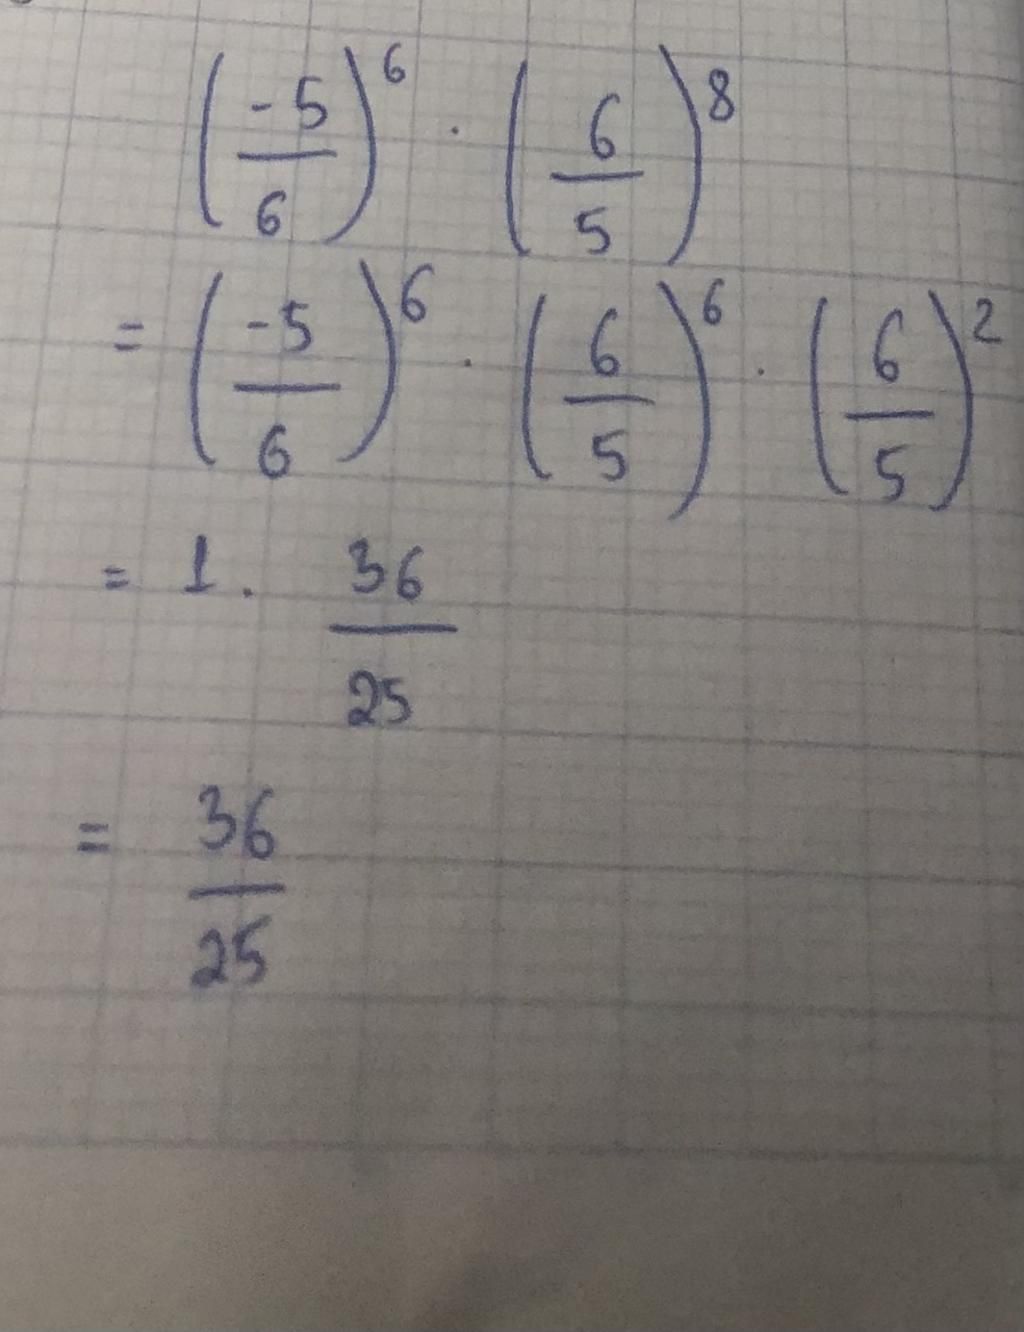 (-5/6)^6 . (6/5)^8
= (-5/6)^6 . (6/5)^6 . (6/5)^2
= 1 . 36/25
= 36/25